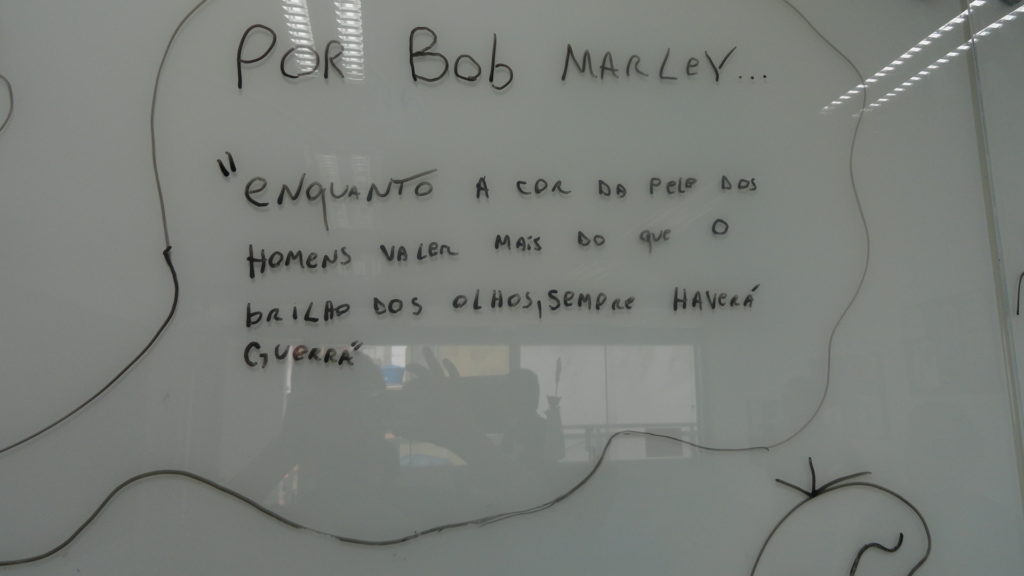 POR Bob MARLEY...
"ENQUANTO A COR DA PELE DOS
HOMENS VALER MAIS DO QUE O
bRILHO DOS OLHOS, SEMPRE HAVERÁ
GUERRA"